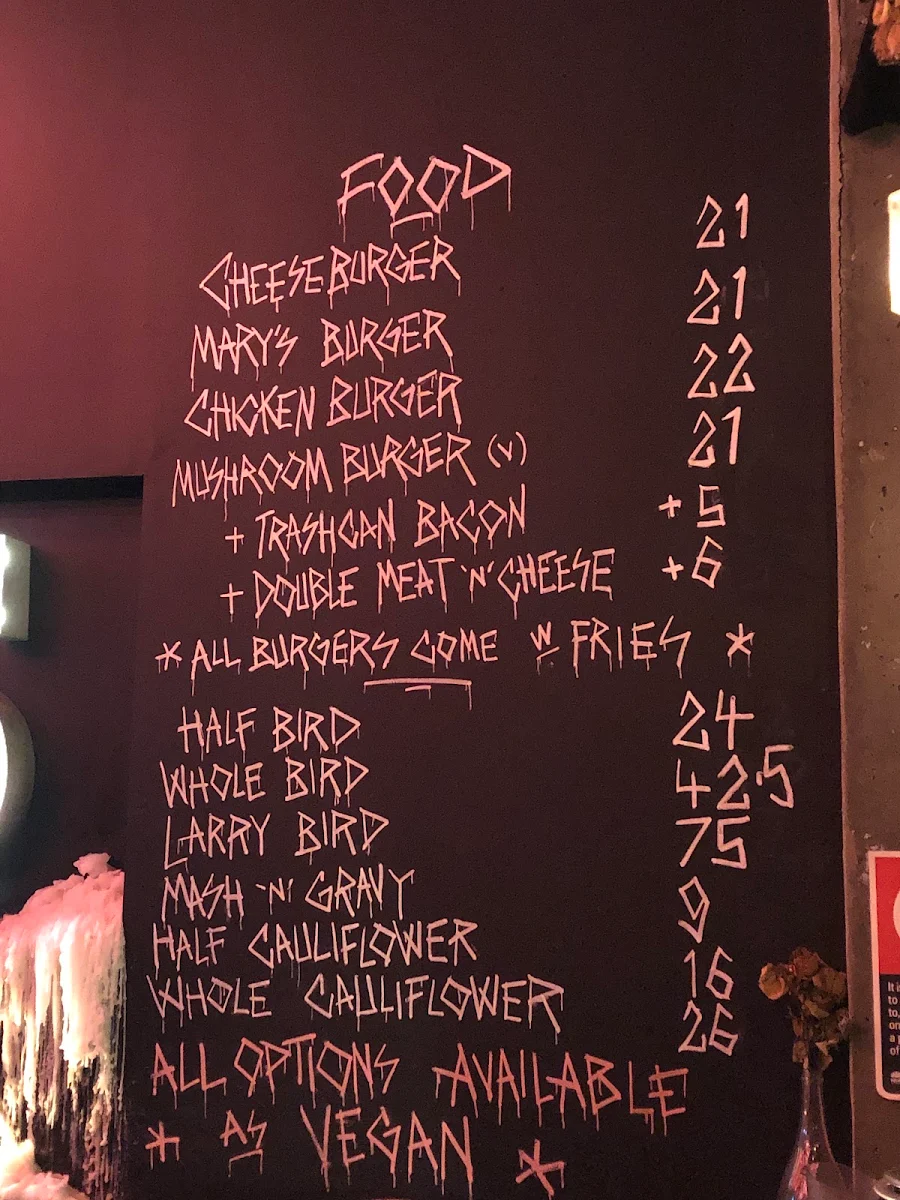 FOOD
CHEESEBURGER 21
MARY'S BURGER 21
CHICKEN BURGER 22
MUSHROOM BURGER (V) 21
+ TRASHCAN BACON +5
+ DOUBLE MEAT 'N' CHEESE +6
* ALL BURGERS COME W FRIES *
HALF BIRD 24
WHOLE BIRD 42.5
LARRY BIRD 75
MASH 'N' GRAVY 9
HALF CAULIFLOWER 16
WHOLE CAULIFLOWER 26
ALL OPTIONS AVAILABLE
* AS VEGAN *